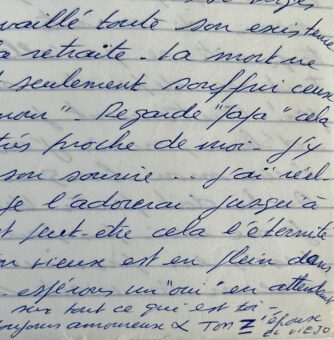 vaillé toute son existen
la retraite. La mort ne
t seulement souffrir ceux
mour". Regarde "Papa" cela
très proche de moi. J'y
son sourire... j'ai réel
je l'adorerai jusqu'à
st peut-être cela l'éternité
on vieux est en plein dans
.. espérons un "oui" en attendant
sur tout ce qui est toi -
toujours amoureux & TON
l'époux
EL VIEJO